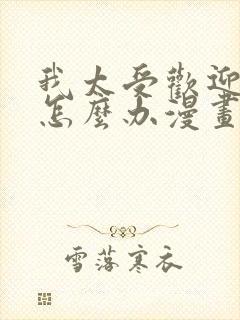 我太受歡迎
怎麼办漫畫
雪落寒衣